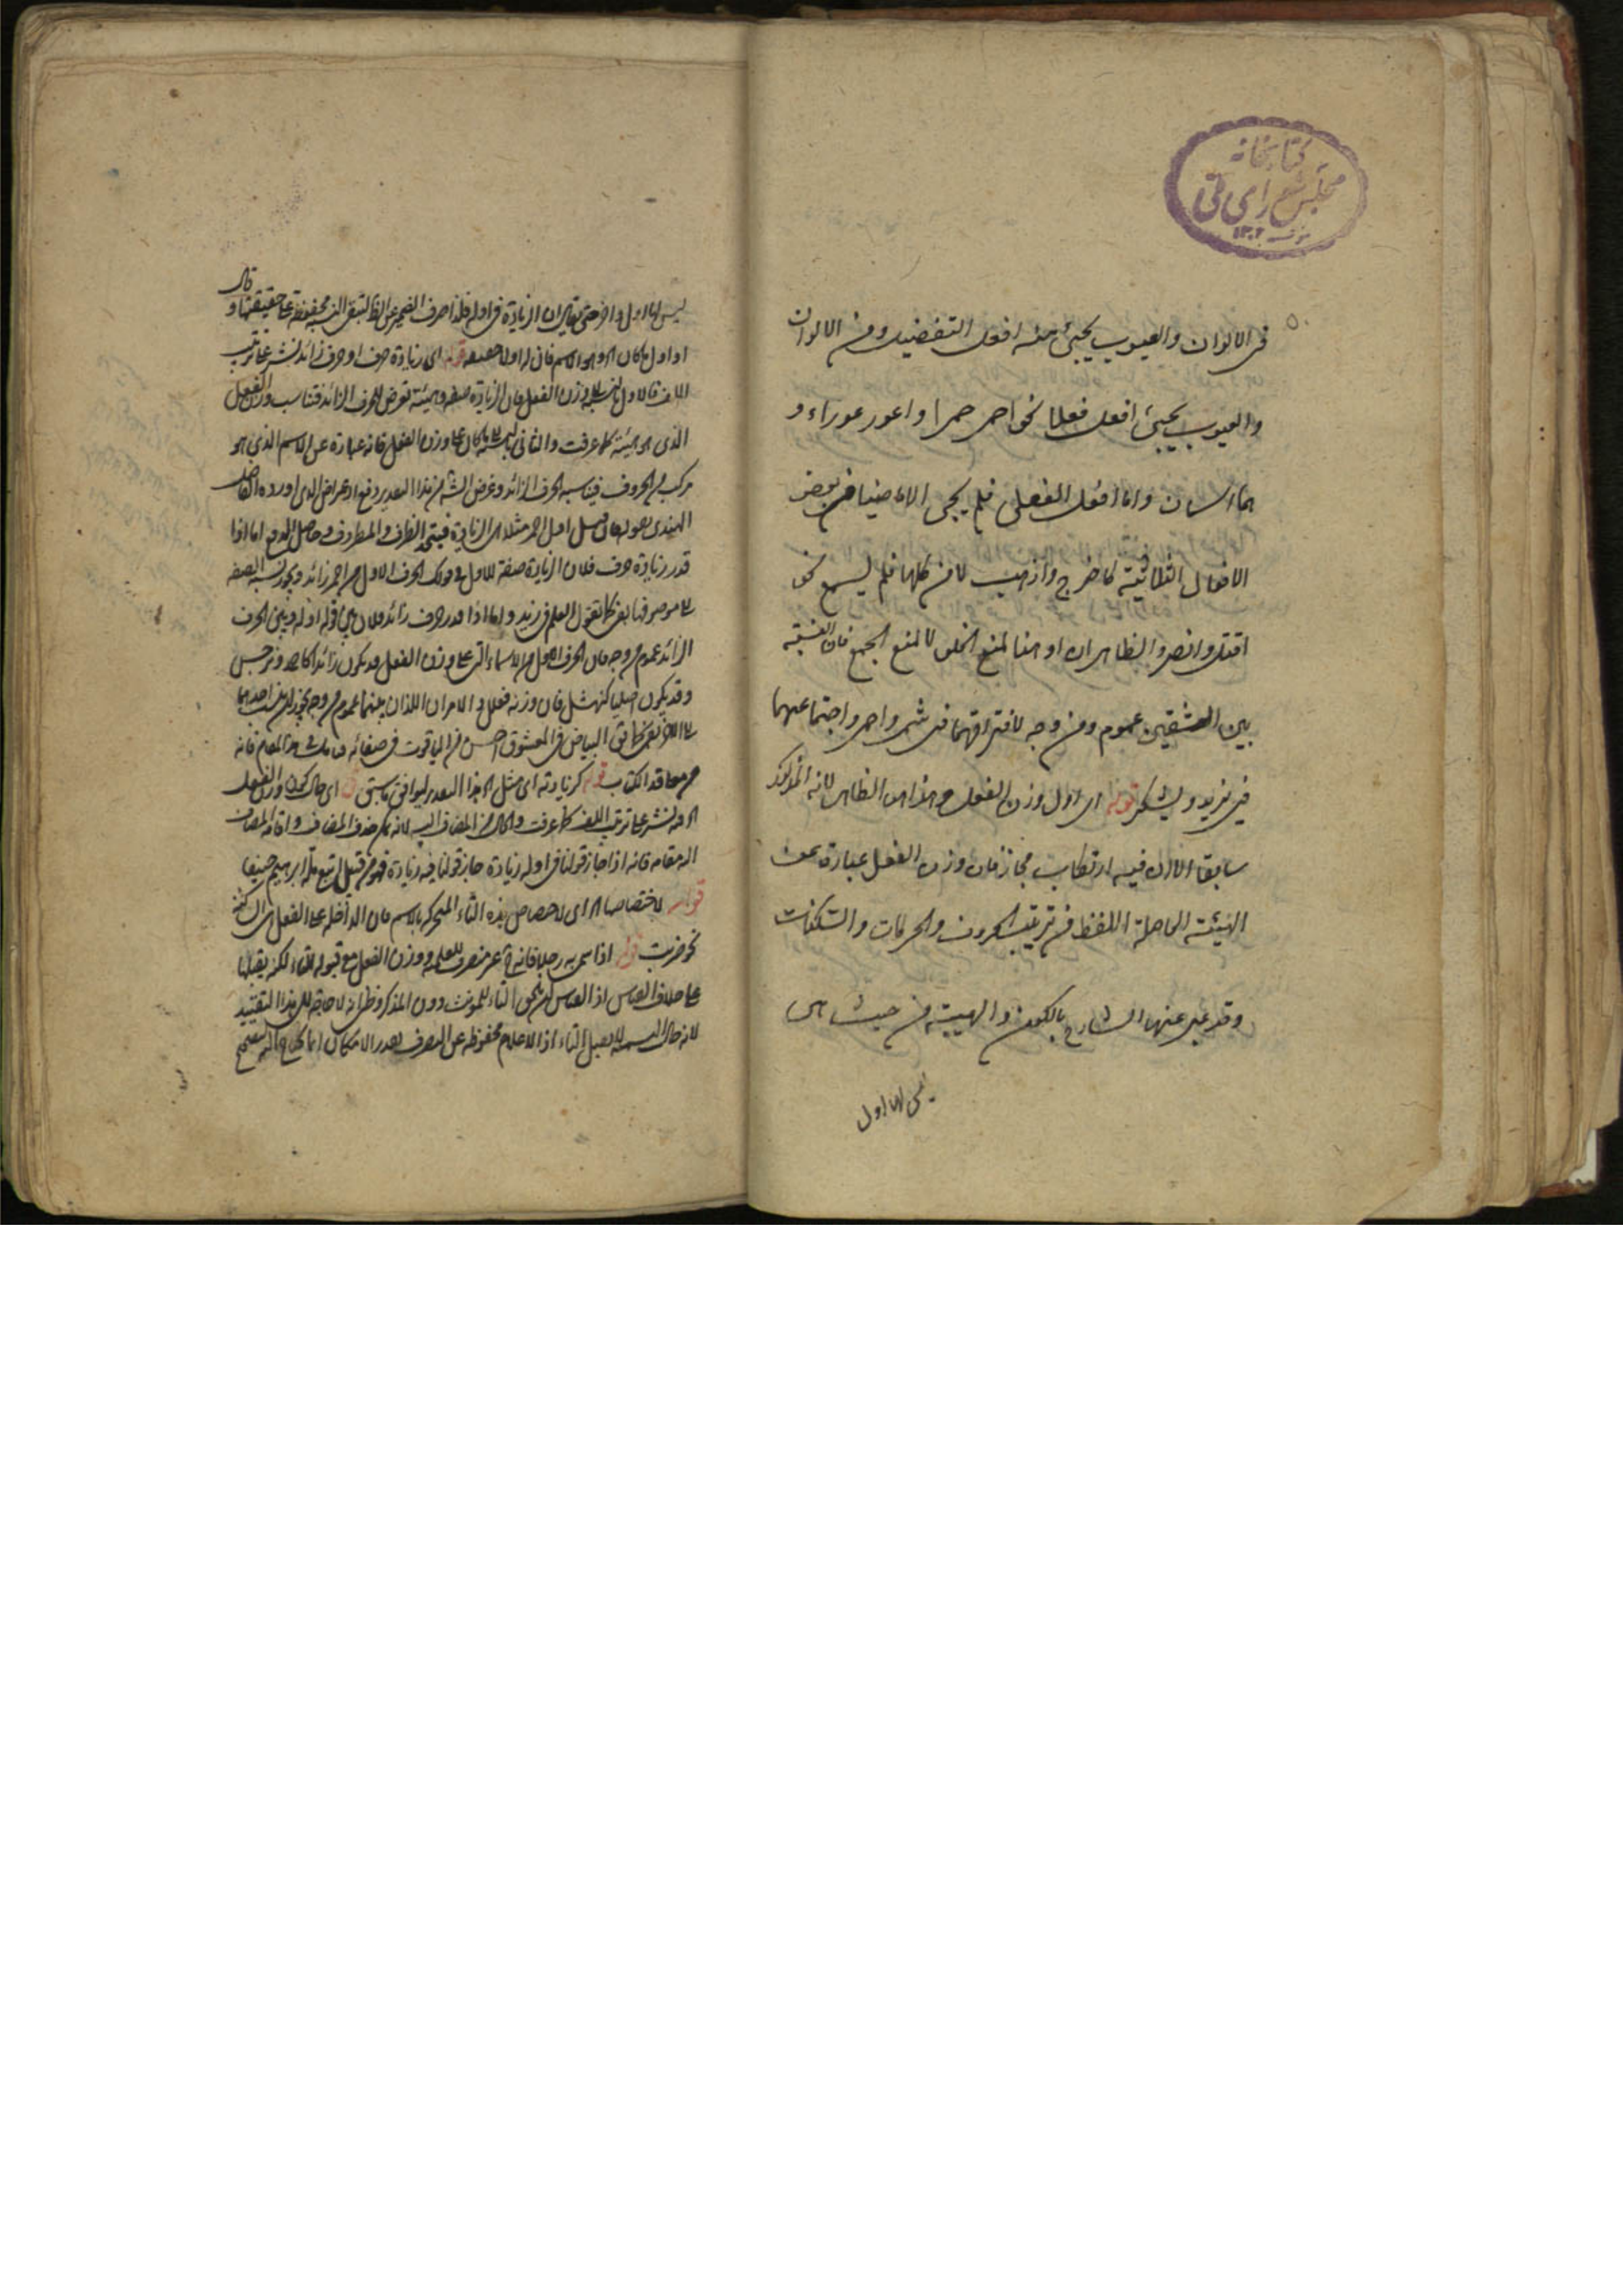 كتابخانه
مجلس شورای ملی
١٣٠٢
فى الالوان والعيوب يجيئ منه افعل التفضيل ومن الالوان
والعيوب يجيئ افعل فعلاء نحو احمر حمرا واعور عوراء و
هما اسمان واما افعل الفعلى فلم يجى الا من بعض
الافعال الثلاثية كاخرج واذهب لا من كلها فلم يسمع نحو
اقتل وانصر والظاهر ان او هنا لمنع الخلو لا لمنع الجمع فان النسبة
بين الشقين عموم ومن وجه لافتراقهما فى شمر واحمر واجتماعهما
فى يزيد ويشكر قوله اى اول وزن الفعل وهذا هو الظاهر لانه المذكور
سابقا الا ان فيه ارتكاب مجاز فان وزن الفعل عبارة عن
الهيئة الحاصلة اللفظ من ترتيب الحروف والحركات والسكنات
وقد عبر عنها الشارح بالكون والهيئة من حيث هى
ليس لها اول
ليس لها اول و آخر حتى يقال ان الزيادة فى اوله فلذا صرف الضمير عن الظ لتبقى النسبة محفوظة على حقيقتها وقال
او اول ما كان اه وهو الاسم فان له اولا حقيقة قوله اى زيادة حرف او حرف زائد نشر على ترتيب
اللف فالاول بالنسبة الى وزن الفعل فان الزيادة صفة وهيئة تعرض للحرف الزائد فتناسب وزن الفعل
الذى هو هيئة كما عرفت والثانى بالنسبة الى ما كان على وزن الفعل فانه عبارة عن الاسم الذى هو
مركب من الحروف فيناسبه الحرف الزائد وغرض الشه من هذا التقدير دفع اعتراض الذى اورده الفاضل
الهندى بقوله فان قيل اول احمر مثلا هى الزيادة فيتحد الظرف والمظروف وحاصل الدفع اما اذا
قدر زيادة حرف فلان الزيادة صفة للاول فى قولك الحرف الاول من احمر زائد ويجوز نسبة الصفة
الى موصوفها بفى كما تقول العلم فى زيد واما اذا قدر حرف زائد فلان بين قوله اوله وبين الحرف
الزائد عموم من وجه فان الحرف الاول من الاسماء التى على وزن الفعل قد يكون زائدا كاحمد ونرجس
وقد يكون اصليا كنهشل فان وزنه فعلل و الامران اللذان بينهما عموم من وجه يجوز ان ينسب احدهما
الى الاخر بفى كما فى البياض فى المعشوق احسن من الياقوت فى صفائه فتأمل فى هذا المقام فانه
من معاقد الكتاب قوله كزيادته اى مثل اه هذا التقدير ليوافق ما سبق قوله اى حال كون وزن الفعل
اه فنشر على ترتيب اللف كما عرفت والحال من المضاف اليه لانه يمكن حذف المضاف واقامة المضاف
اليه مقامه فانه اذا جاز قولنا فى اوله زيادة جاز قولنا فيه زيادة فهو من قبيل اتبع ملة ابرهيم حنيفا
قوله لاختصاصها اه اى لاختصاص هذه التاء المتحركة بالاسم فان الداخلة على الفعل هى الساكنة
نحو ضربت قوله اذا سمى به رجل فانه ح غير منصرف للعلمية ووزن الفعل مع قبوله للتاء لكنه يقبلها
على خلاف القياس اذ القياس ان تلحق التاء للمؤنث دون المذكر وظهر انه لا حاجة الى هذا التقييد
لانه حال التسمية لا يقبل التاء اذ الاعلام محفوظة عن التصرف بقدر الامكان